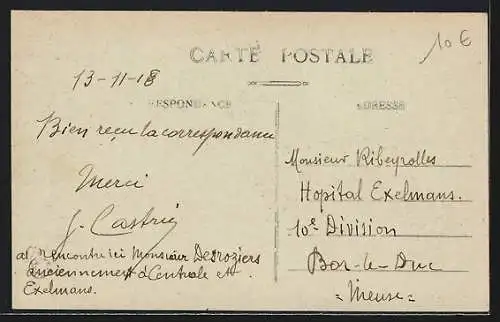 CARTE POSTALE
10€
13-11-18
RESPONDANCE
ADRESSE
Bien reçu la correspondance
Merci
J. Castrie
ai rencontré ici Monsieur Desroziers
anciennement à Centrale et
Exelmans.
Monsieur Ribeyrolles
Hopital Exelmans.
10e Division
Bar-le-Duc
= Meuse =